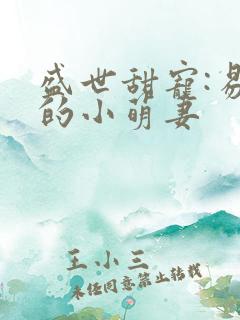 盛世甜宠:易
的小萌妻
王小三
未经同意禁止转载